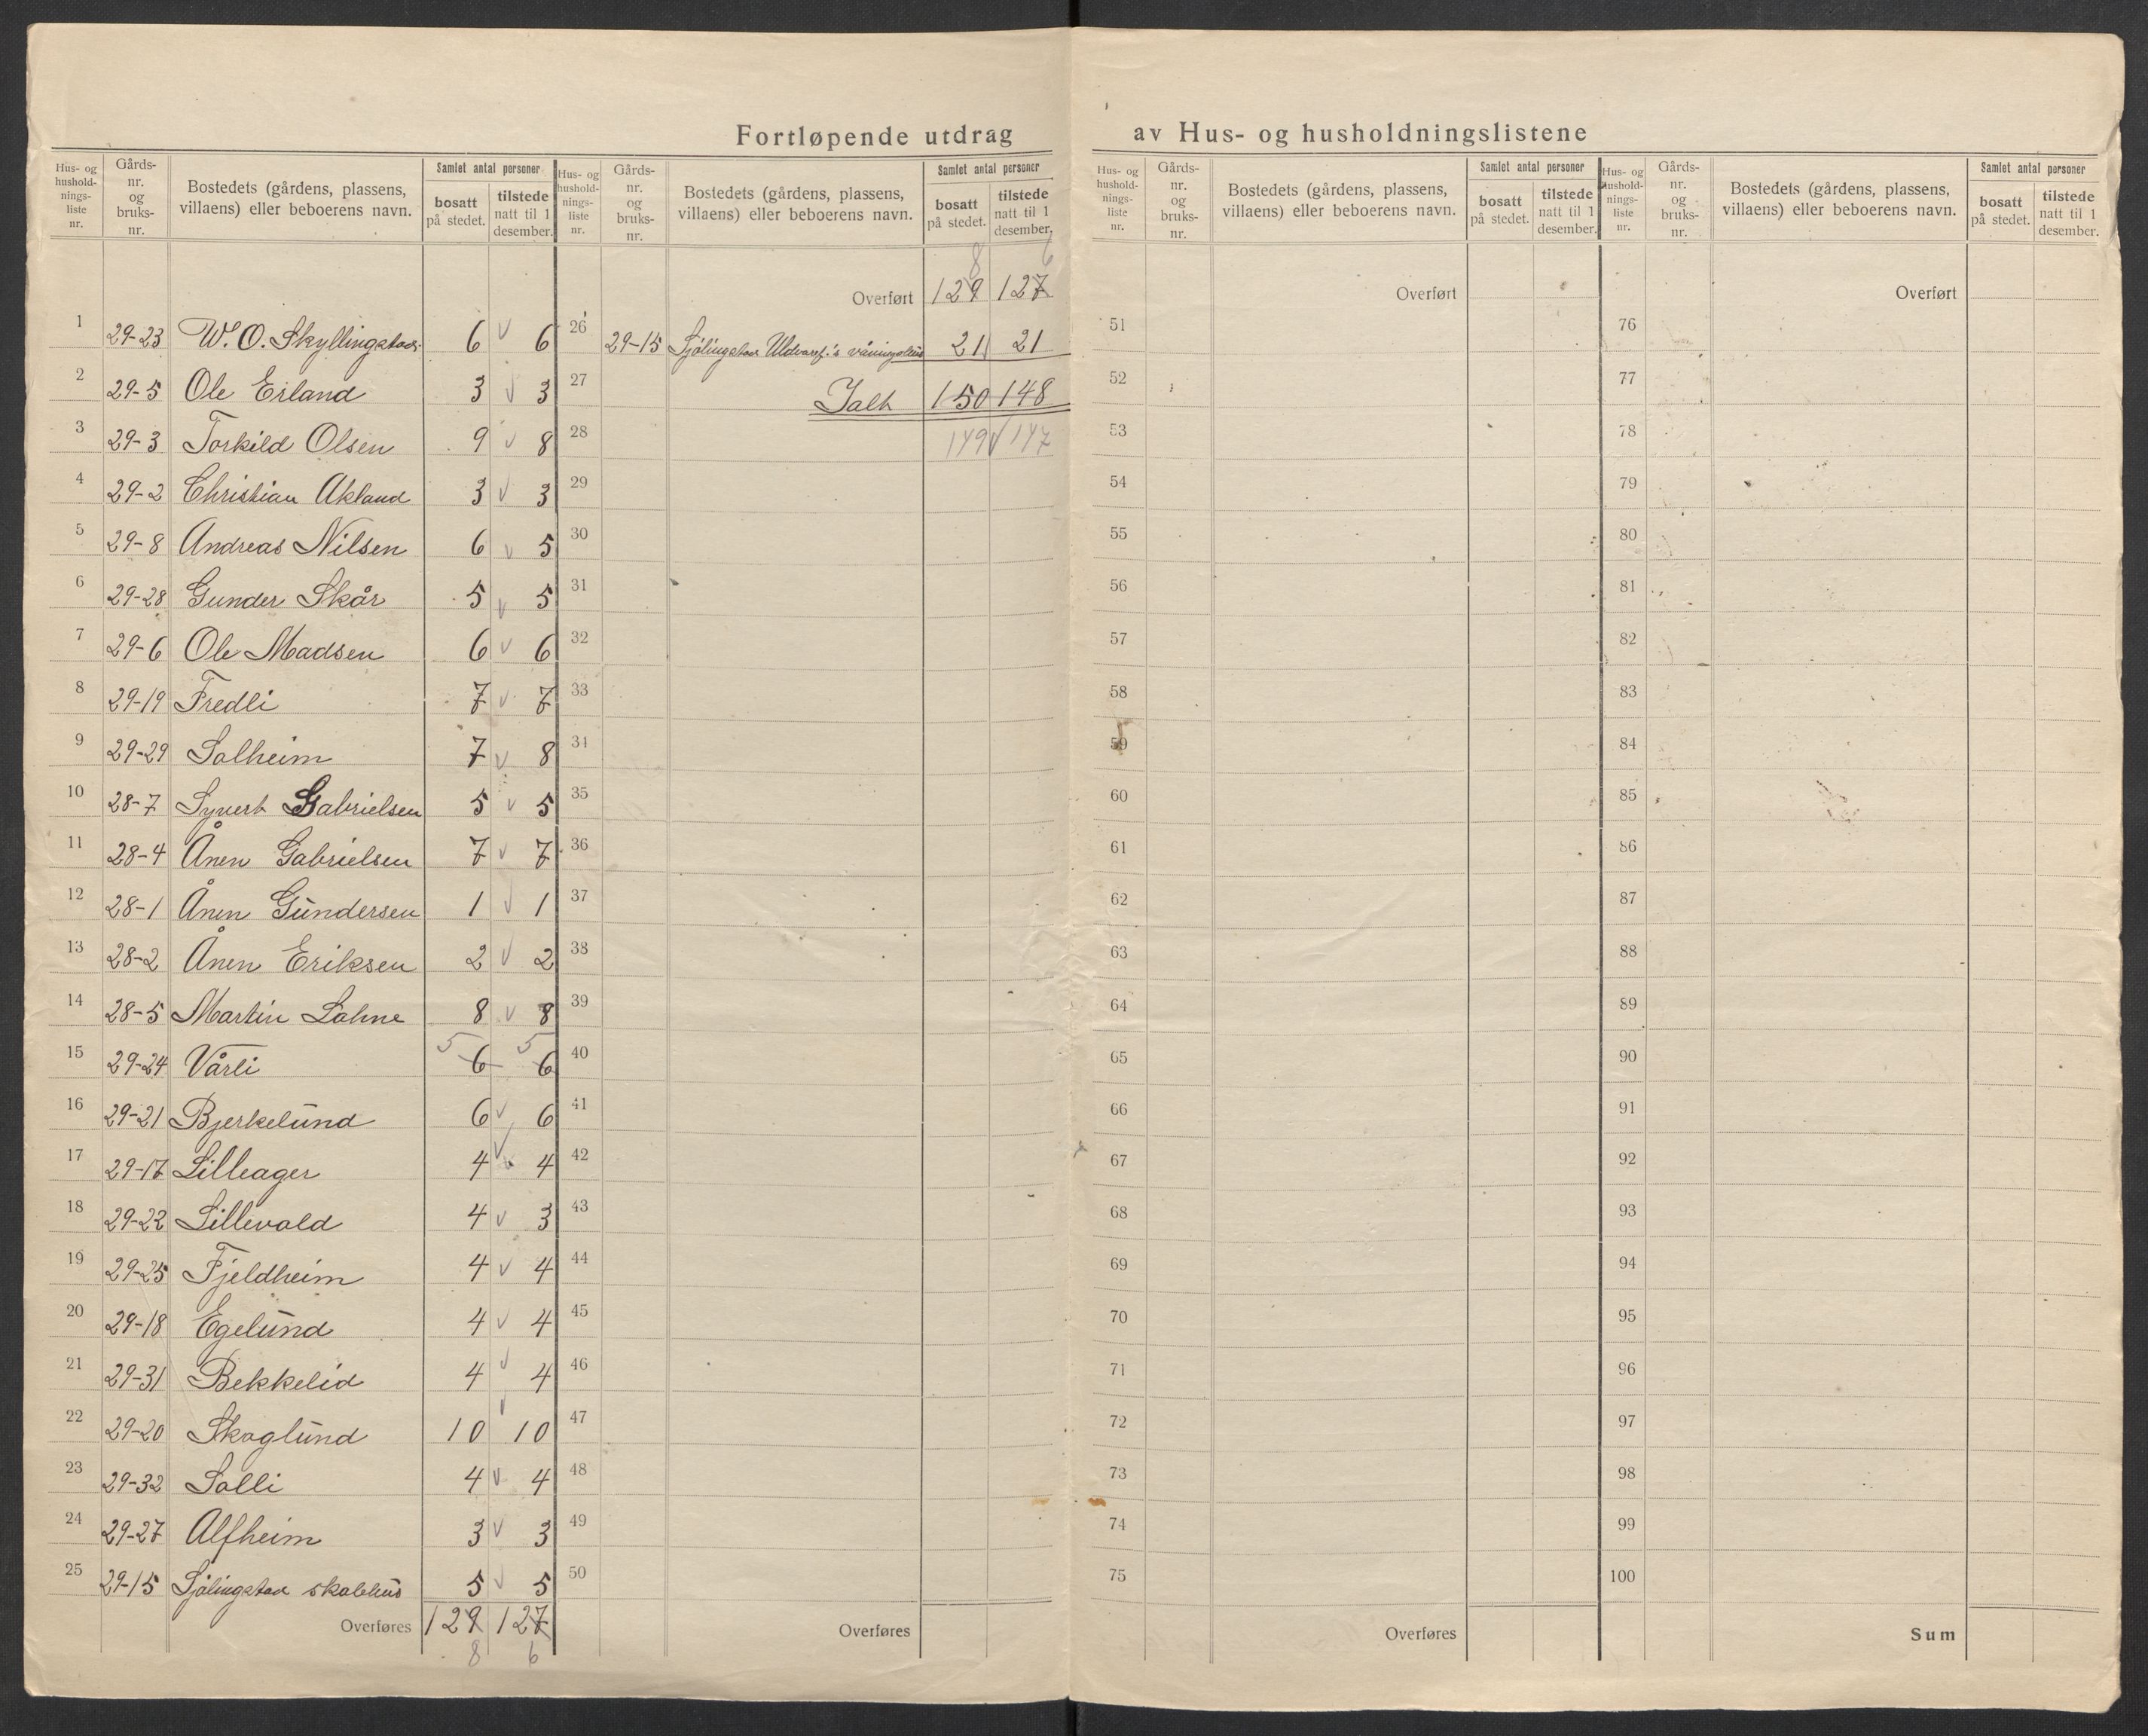 Fortløpende utdrag av Hus- og husholdningslistene
Hus- og hushold-nings-liste nr. Gårds-nr. og bruks-nr. Bostedets (gårdens, plassens, villaens) eller beboerens navn. Samlet antal personer bosatt på stedet. tilstede natt til 1 desember.
1 29-23 W. O. Skyllingstad 6 v 6
2 29-5 Ole Eiland 3 v 3
3 29-3 Torkild Olsen 9 v 8
4 29-2 Christian Akland 3 v 3
5 29-8 Andreas Nilsen 6 v 5
6 29-28 Gunder Skår 5 v 5
7 29-6 Ole Madsen 6 v 6
8 29-19 Fredli 7 v 7
9 29-29 Solheim 7 v 8
10 28-7 Syvert Gabrielsen 5 v 5
11 28-4 Ånen Gabrielsen 7 v 7
12 28-1 Ånen Gundersen 1 v 1
13 28-2 Ånen Eriksen 2 v 2
14 28-5 Martin Lohne 8 v 8
15 29-24 Vårli 5 6 5 6
16 29-21 Bjerkelund 6 v 6
17 29-17 Lilleager 4 v 4
18 29-22 Lillevold 4 v 3
19 29-25 Fjeldheim 4 v 4
20 29-18 Egelund 4 v 4
21 29-31 Bekkelid 4 v 4
22 29-20 Skoglund 10 v 10
23 29-32 Solli 4 v 4
24 29-27 Alfheim 3 v 3
25 29-15 Sjølingstad skolehus 5 v 5
Overføres 129 127
8 6
Hus- og hushold-nings-liste nr. Gårds-nr. og bruks-nr. Bostedets (gårdens, plassens, villaens) eller beboerens navn. Samlet antal personer bosatt på stedet. tilstede natt til 1 desember.
8 6
Overført 129 127
26 29-15 Sjølingstad Uldvaref.'s våningshus 21 21
27 Ialt 150 148
28 149 v 147
29
30
31
32
33
34
35
36
37
38
39
40
41
42
43
44
45
46
47
48
49
50
Overføres
Hus- og hushold-nings-liste nr. Gårds-nr. og bruks-nr. Bostedets (gårdens, plassens, villaens) eller beboerens navn. Samlet antal personer bosatt på stedet. tilstede natt til 1 desember.
Overført
51
52
53
54
55
56
57
58
59
60
61
62
63
64
65
66
67
68
69
70
71
72
73
74
75
Overføres
Hus- og hushold-nings-liste nr. Gårds-nr. og bruks-nr. Bostedets (gårdens, plassens, villaens) eller beboerens navn. Samlet antal personer bosatt på stedet. tilstede natt til 1 desember.
Overført
76
77
78
79
80
81
82
83
84
85
86
87
88
89
90
91
92
93
94
95
96
97
98
99
100
Sum